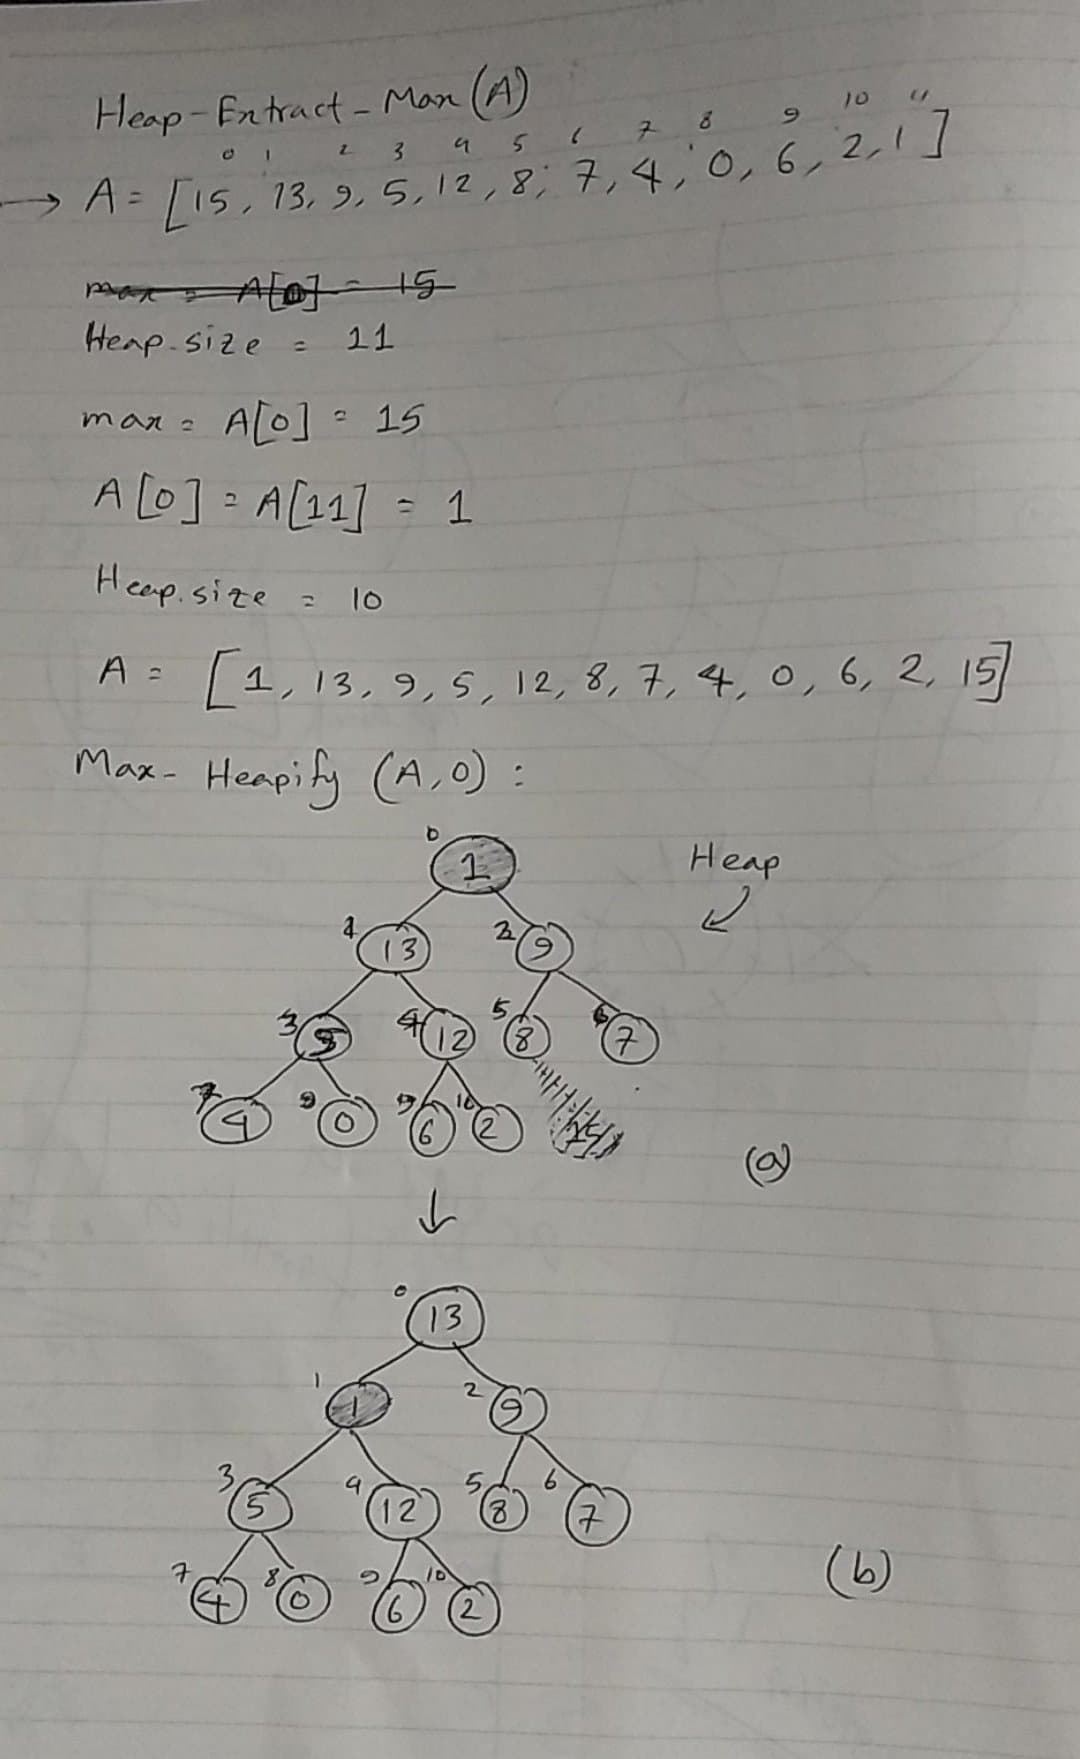 Heap-Extract-Max (A)
0 1 2 3 4 5 6 7 8 9 10 11
→ A = [15, 13, 9, 5, 12, 8, 7, 4, 0, 6, 2, 1]
max = A[0] = 15
Heap.size = 11
max = A[0] = 15
A[0] = A[11] = 1
Heap.size = 10
A = [1, 13, 9, 5, 12, 8, 7, 4, 0, 6, 2, 15]
Max-Heapify (A, 0) :
0
1
Heap
1 13 2 9
3 5 4 12 5 8 6 7
7 4 9 0 9 6 10 2
(a)
↓
0 13
1 1 2 9
3 5 4 12 5 8 6 7
7 4 8 0 9 6 10 2
(b)